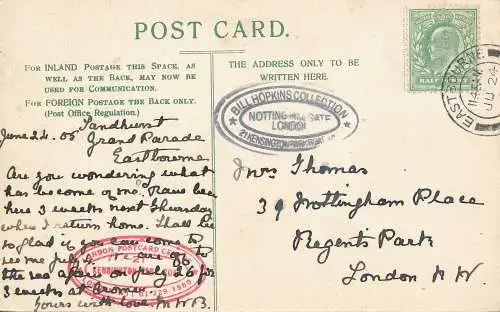 POST CARD.
FOR INLAND POSTAGE THIS SPACE, AS
WELL AS THE BACK, MAY NOW BE
USED FOR COMMUNICATION.
FOR FOREIGN POSTAGE THE BACK ONLY.
(Post Office Regulation.)
THE ADDRESS ONLY TO BE
WRITTEN HERE.
HALFPENNY
EASTBOURNE
JU 24
BILL HOPKINS COLLECTION
NOTTING HILL GATE
LONDON
21 KENSINGTON PARK
June 24. 05 Sandhurst
Grand Parade
Eastbourne
Are you wondering what
has become of me. Have been
here 3 weeks next Thursday
when I return home. Shall be
so glad if you can come to
see me We are off to
the sea again on July 26 for
3 weeks at Cromer.
Yours with love. M.W.B.
LONDON POSTCARD CENTRE
21
KENSINGTON PARK ROAD
Mrs Thomas
39 Nottingham Place
Regents Park
London N W